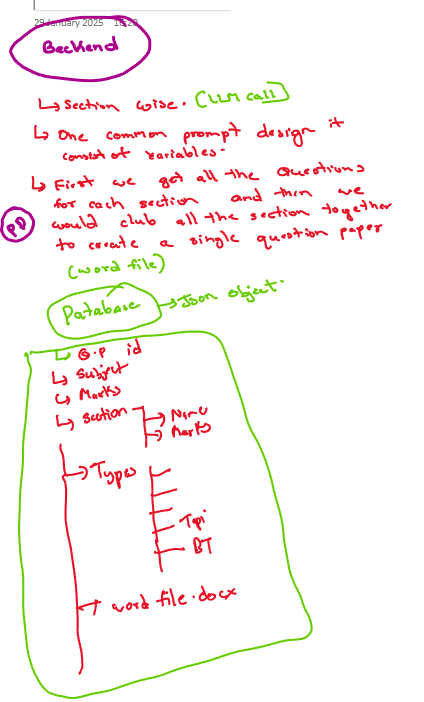 29 January 2025 18:20
Backend
↳ Section wise. (LLM call)
↳ One common prompt design it
consist of variables.
↳ First we get all the Questions
for each section and then we
would club all the section together
to create a single question paper
PD
(word file)
Database → Json object.
↳ Q.P id
↳ Subject
↳ Marks
↳ Section → Name
→ Marks
→ Types
Topi
BT
→ word file.docx